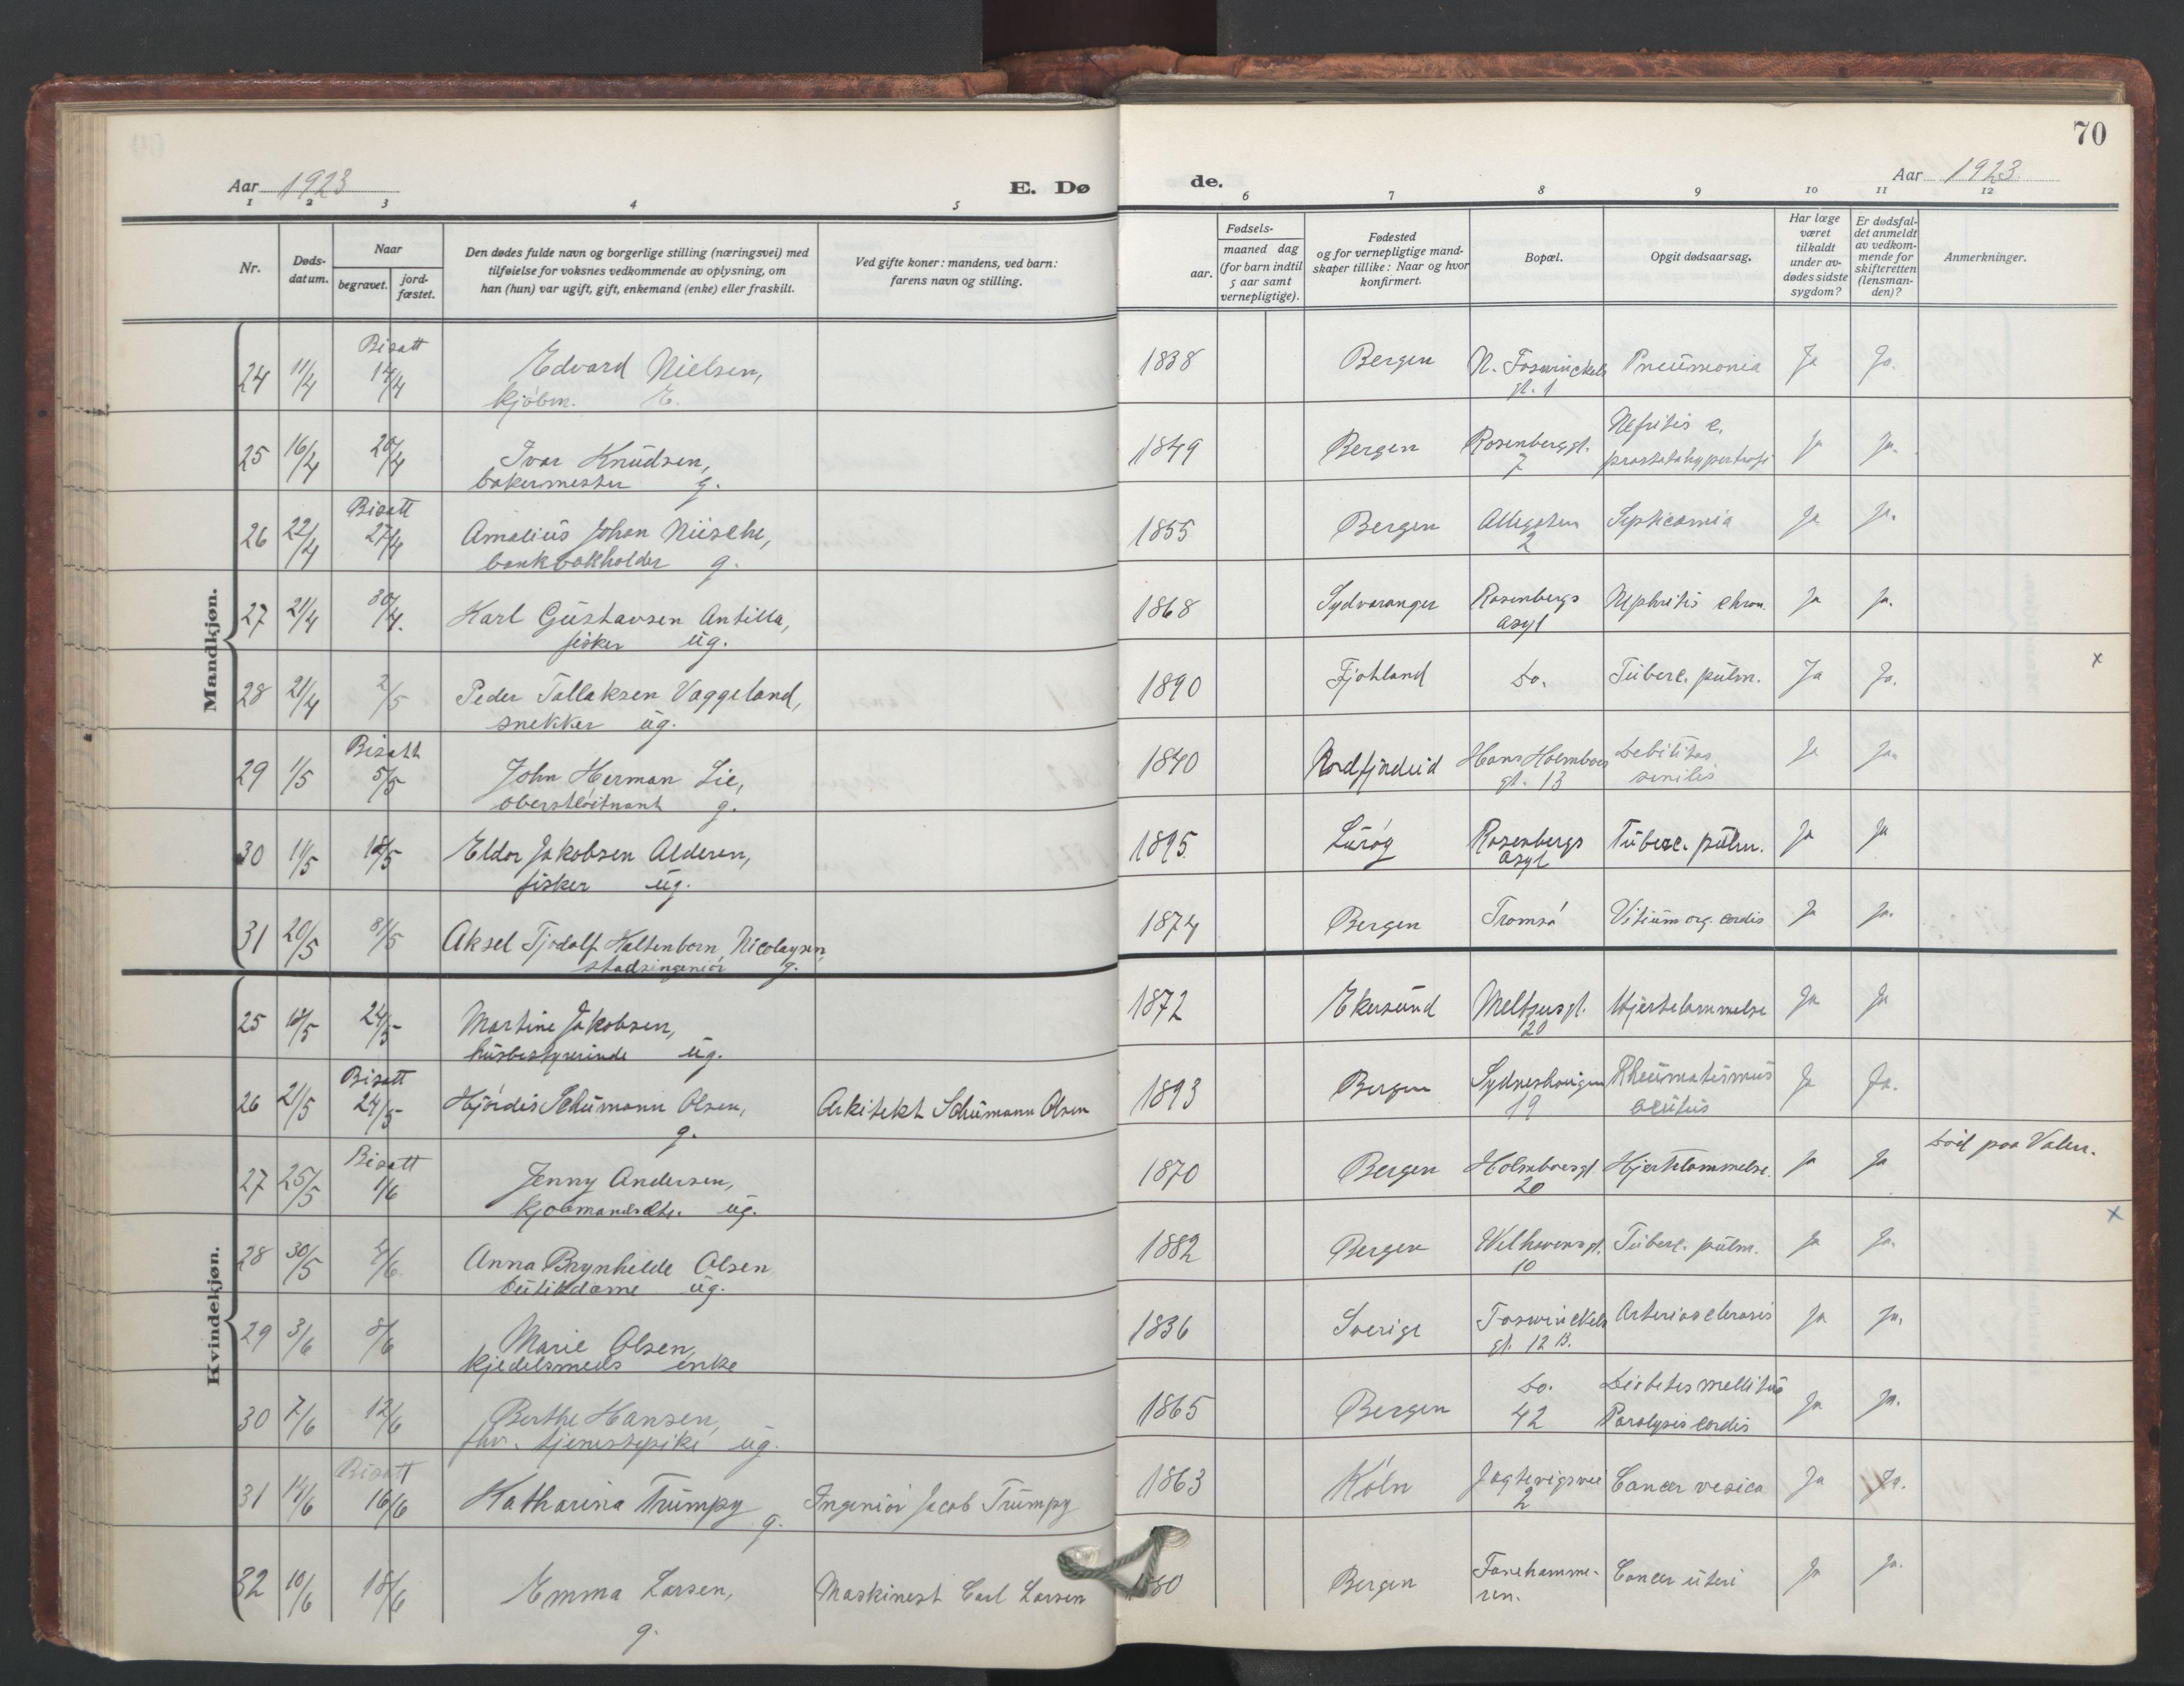 70
Aar 1923
E. Dø
de.
Aar 1923.
1 2 3 4 5 6 7 8 9 10 11 12
Nr.
Døds-
datum.
Naar
begravet.
jord-
fæstet.
Den dødes fulde navn og borgerlige stilling (næringsvei) med
tilføielse for voksnes vedkommende av oplysning, om
han (hun) var ugift, gift, enkemand (enke) eller fraskilt.
Ved gifte koner: mandens, ved barn:
farens navn og stilling.
Fødsels-
aar.
maaned dag
(for barn indtil
5 aar samt
vernepligtige).
Fødested
og for vernepligtige mand-
skaper tillike: Naar og hvor
konfirmert.
Bopæl.
Opgit dødsaarsag.
Har læge
været
tilkaldt
under av-
dødes sidste
sygdom?
Er dødsfal-
det anmeldt
av vedkom-
mende for
skifteretten
(lensman-
den)?
Anmerkninger.
Mandkjøn.
Bisatt
24 11/4 14/4 Edvard Nielsen, 1838 Bergen N. Foswinckels Pneumonia Ja Ja.
kjøbm. E. gt. 1
25 16/4 20/4 Ivar Knudsen, 1849 Bergen Rosenberggt. Nefritis c. Ja Ja.
bakermester g. 7 prostatahypertrofi
Bisatt
26 22/4 27/4 Amalius Johan Nitsche, 1855 Bergen Allegaten Septicæmia Ja Ja.
bankbokholder g. 2
27 21/4 30/4. Karl Gustavsen Antilla, 1868 Sydvaranger Rosenbergs Nephritis chron. Ja Ja.
fisker ug. asyl
28 21/4 2/5 Peder Tallaksen Vaggeland, 1890 Fjotland Do. Tuberc. pulm. Ja Ja. x
snekker ug.
Bisatt
29 1/5 5/5 John Herman Lie, 1840 Nordfjordeid Hans Holmboes Debilitas Ja Ja.
oberstløitnant g. gt. 13 senilis
30 11/5 18/5 Eldor Jakobsen Alderen, 1895. Lurøy Rosenbergs Tuberc. pulm. Ja Ja
fisker ug. asyl
31 20/5 31/5 Aksel Tjodolf Kaltenborn Nicolaysen, 1874 Bergen Tromsø Vitium org. cordis Ja Ja.
stadsingeniør g.
Kvindekjøn.
25 18/5 24/5 Martine Jakobsen, 1872 Ekersund Meltzersgt. Hjertelammelse Ja Ja
husbestyrerinde ug. 20
Bisatt
26 21/5 24/5 Hjørdis Schumann Olsen, Arkitekt Schumann Olsen 1893 Bergen Sydneshaugen Rheumatismus Ja Ja.
g. 19 acutus
Bisatt
27 25/5 1/6 Jenny Andersen, 1870 Bergen Holmboesgt. Hjertelammelse. Ja Ja Død paa Valen.
kjøbmandsdtr. ug. 20
28 30/5 4/6 Anna Brynhilde Olsen 1882 Bergen Welhavensgt. Tuberc. pulm. Ja Ja. x
butikdame ug. 10
29 3/6 8/6 Marie Olsen, 1836 Sverige Foswinckels Arteriosclerosis Ja Ja.
kjedelsmeds enke gt. 12 B.
30 7/6 12/6 Berthe Hansen, 1865 Bergen Do. Diabetes mellitus Ja Ja.
fhv. tjenestepike ug. 42 Paralysis cordis
Bisatt
31 14/6 16/6 Katharina Trumpy Ingeniør Jacob Trumpy 1863 Köln Jægtevigsvei Cancer vesica Ja Ja.
g. 2
32 10/6 18/6 Emma Larsen, Maskinest Carl Larsen 80 Bergen Fanehamme- Cancer uteri Ja Ja.
g. ren.